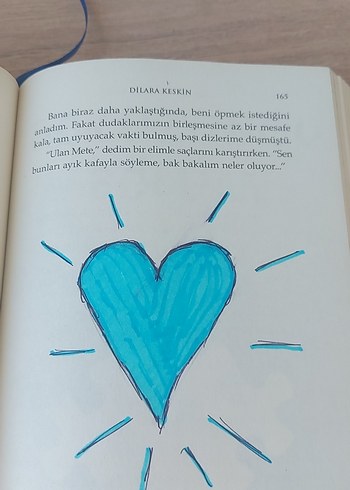 DİLARA KESKİN
165
Bana biraz daha yaklaştığında, beni öpmek istediğini
anladım. Fakat dudaklarımızın birleşmesine az bir mesafe
kala, tam uyuyacak vakti bulmuş, başı dizlerime düşmüştü.
"Ulan Mete," dedim bir elimle saçlarını karıştırırken. "Sen
bunları ayık kafayla söyleme, bak bakalım neler oluyor..."